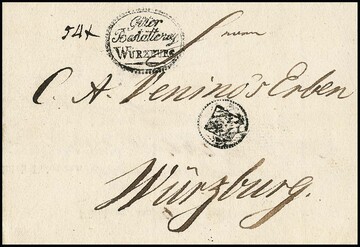 54x
Güter
Bestätterei
WÜRZBURG
C. A. Venino's Erben
Würzburg.